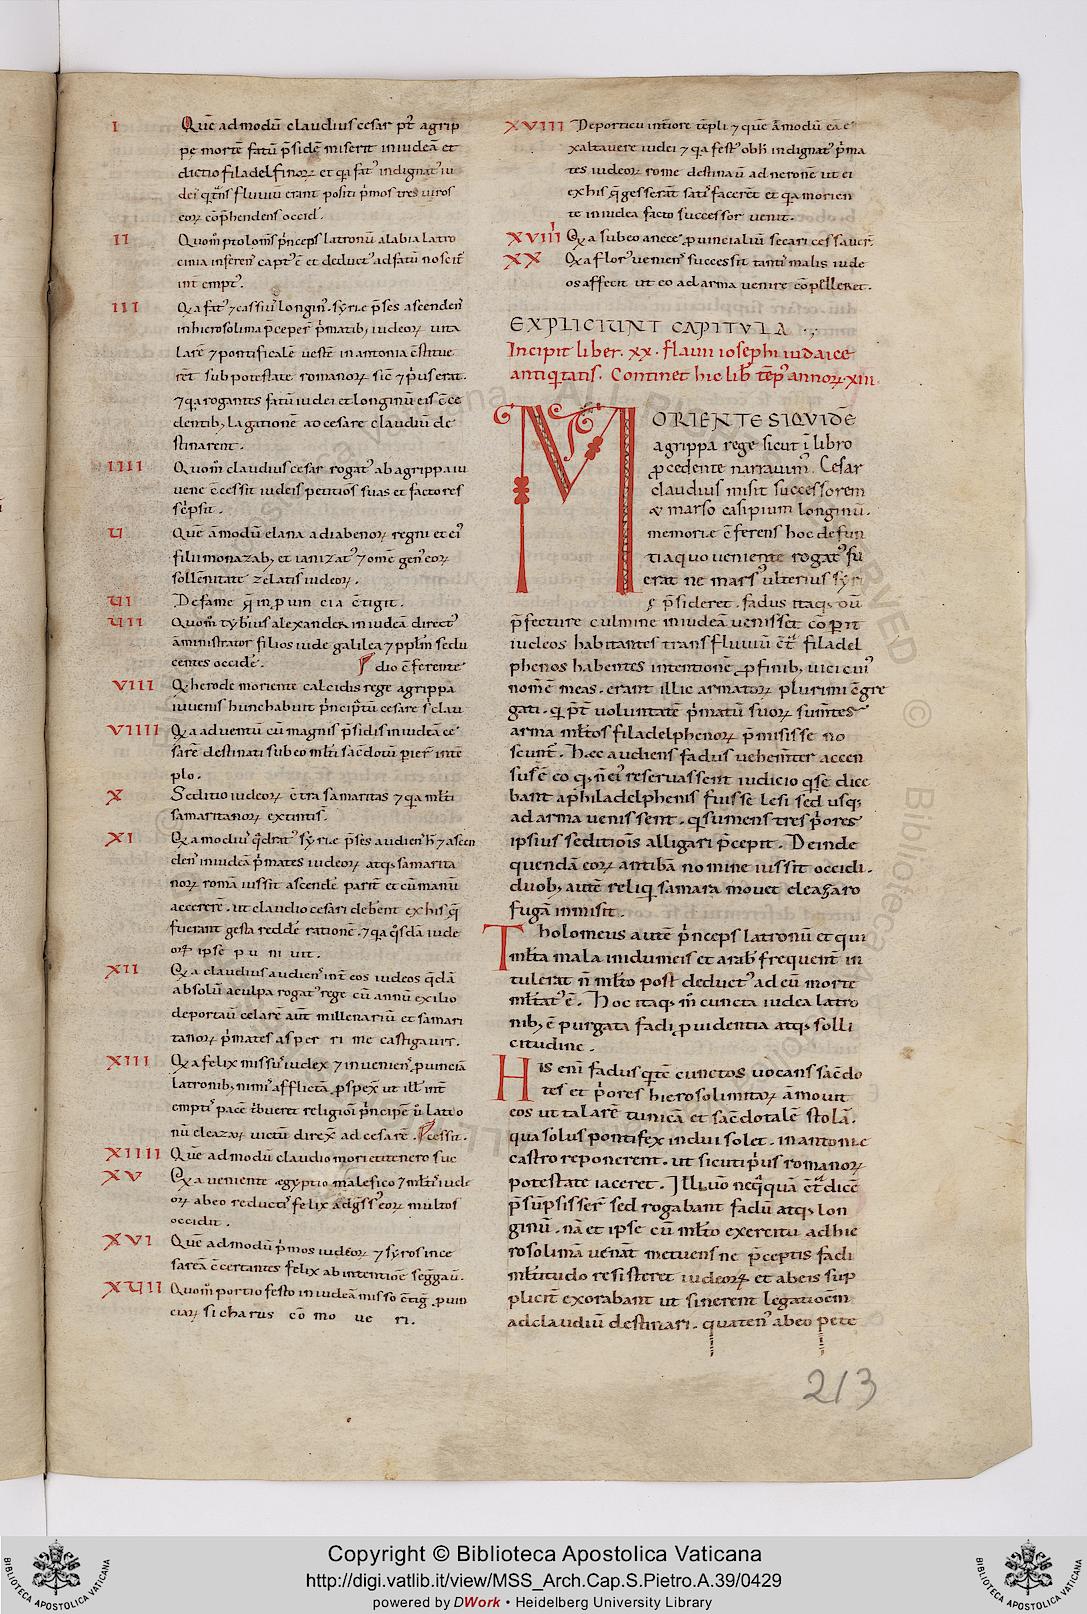 I Quē admodū claudius cesar pt' agrip
pe mortē fatū p̄sidē miserit in iudeā et
dictio filadelfinoꝝ et qa fat' indignat' iu
dei qt̄ns fluuiū erant positi p̍mos tres uiros
eoꝝ cōp̄hendens occid'.
II Quom̄ ptolom̄s p̍nceps latronū alabia latro
cinia inferen' capt' ē et deduct' ad fatū
int̄empt'.
III Qa fat' ⁊ cassiu' longin' syrię p̄ses ascenden'
in hierosolima p̄ceper' p̍matib; iudeoꝝ
larē ⁊ pontificalē uestē in antonia c̄stitue
rēt sub potestate romanoꝝ sic̄ ⁊ p̍us erat.
⁊ qa rogantes fatū iudei et longinū eis c̄ce
dentib; lagationē ao cesare claudiū de
stinarent.
IIII Quom̄ claudius cesar rogat' ab agrippa iu
uene c̄cessit iudeis petitiōs suas et factores
sc̍psit.
U Quē āmodū elana adiabenoꝝ regni et ei'
filii monazab; et ianizat' ⁊ omē gen' eoꝝ
sollēnitatē zelatis iudeoꝝ.
UI De fame q̄ in ꝓuincia c̄tigit.
UII Quom̄ tyb̍ius alexander in iudeā direct'
āministrator filios iude galilea ⁊ pplm̄ sedu
centes occidē. dio c̄ferente
VIII Q herode moriente calcidis rege agrippa
iuuenis hunc habuit p̍ncip̄tū cesare
VIIII Qa aduentū cū magnis p̄sidis in iudeā ce
sarē destinati sub eo mlt̄i sac̄dotū pier' int̄e
plo.
X Seditio iudeoꝝ c̄tra samaritas ⁊ qa mlt̄i
samaritanoꝝ extinti s̄.
XI Qa modiu' q̄drat' syrię p̄ses audien' ⁊ ascen
den' in iudeā p̍mates iudeoꝝ atq; samarita
noꝝ romā iussit ascendē parit̄ et cūmanū
accererē. ut claudio cesari debent ex his q̄
fuerant gesta reddē rationē. ⁊ qa q̍sdā iude
oꝝ ipse pu ni uit.
XII Qa claudius audien' int̄ eos iudeos q̄dā
absolū a culpa rogat' rege cū annū exilio
deportaū celarē aut̄ millenariū et samari
tanoꝝ p̍mates asper ri me castigauit.
XIII Qa felix missu' iudex ⁊ inuenien' ꝓuinciā
latronib; nimi' afflictā ꝓspex' ut ill' int̄
empti' pacē t̍bueret religiōi p̍ncipē u̍ latro
nū eleazaꝝ uictū direx' ad cesarē. cessit.
XIIII Quē admodū claudio mori etitenero suc
XV Qa ueniente ęgyptio malefico ⁊ mlt̄i' iude
oꝝ ab eo reducti' felix adgss' eoꝝ multos
occidit.
XVI Quē admodū p̍mos iudeoꝝ ⁊ syros in ce
sareā c̄certantes felix ab intentiōe seg̍gau̅.
XVII Quom̄ portio festo in iudeā misso c̄tig̍ ꝓuin
ciaꝝ sicharus cō mo ue ri.
XVIII De porticu int̍iore tēpli ⁊ quē āmodū eā e
xaltauere iudei ⁊ qa fest' obh̄ indignat' p̍ma
tes iudeoꝝ rome destinaū ad neronē ut ei
ex his q̄ gesserant satisfacerēt et qa morien
te in iudea facto successor uenit.
XVIIII Qa sub eo a nece ꝓuincialiū secari cessauer̄.
XX Qa flor' uenien' successit tanti' malis iude
os affecit ut eo ad arma uenire cōpelleret.
EXPLICIUNT CAPITVLA.
Incipit liber. xx. flauii iosephi iudaice
antiq̍tatis. Continet hic lib̄ tēp' annoꝝ xiii.
MORIENTE SIQVIDĒ
agrippa rege sicut ī libro
p̄cedente narrauim'. Cesar
claudius misit successorem
& marso casipium longinū.
memorię c̄ferens hoc defun
tia quo ueniente rogat' fu
erat ne mars' ulterius syri
ę p̄sideret. fadus itaq; dū
p̄fecture culmine in iudeā uenisset cōp̍it
iudeos habitantes trans fluuiū c̄t' filadel
phenos habentes intentionē ꝓ finib; uici cui'
nomē meas. erant illic armatoꝝ plurimi c̄gre
gati. q̍ p̄t̄ uoluntatē p̍matū suoꝝ sumētes
arma mlt̄os filadelphenoꝝ p̄misisse no
scunt'. Hęc audiens fadus uehem̄ter accen
sus ē eo q̍ n̄ ei' reseruassent iudicio q̍ se dice
bant a philadelphenis fuisse lesi sed usq;
ad arma uenissent. q̍ sumens tres p̍ores
ipsius seditiōis alligari p̄cepit. Deinde
quendā eoꝝ antibā nomine iussit occidi.
duob; autē reliq̍ samara mouet eleazaro
fugā inmisit.
Tholomeus autē p̍nceps latronū et qui
mlt̄a mala in idumeis et arab' frequent̄ in
tulerat n̄ mlt̄o post deduct' ad eū morte
mlt̄at' ē. Hoc itaq; m̊ cuncta iudea latro
nib; ē purgata fadi ꝓuidentia atq; solli
citudine.
His enī fadus q̍tē cunctos uocans sac̄do
tes et p̍ores hierosolimitaꝝ āmouit
eos ut talarē tunicā et sac̄dotalē stolā.
qua solus pontifex indui solet. in antonię
castro reponerent. ut sicuti p̍us romanoꝝ
potestate iaceret. Illi uō neq̍quā c̄t̄dicē
p̄sūpsisser' sed rogabant fadū atq; lon
ginū. nā et ipse cū mlt̄o exercitu ad hie
rosolimā uenāt metuens ne p̄ceptis fadi
mlt̄itudo resisteret iudeoꝝ et ab eis sup
plicit̄ exorabant ut sinerent legatioēm
ad claudiū destinari. quaten' ab eo pete
213
Copyright © Biblioteca Apostolica Vaticana
http://digi.vatlib.it/view/MSS_Arch.Cap.S.Pietro.A.39/0429
powered by DWork • Heidelberg University Library
BIBLIOTECA APOSTOLICA VATICANA
BIBLIOTECA APOSTOLICA VATICANA